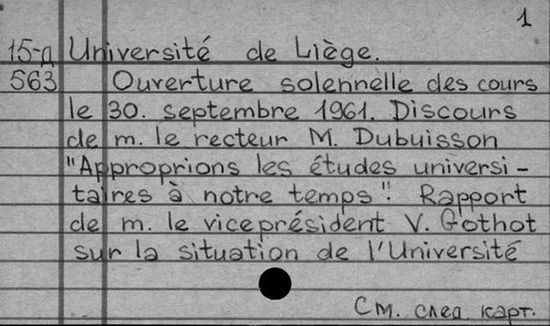 1
15-д Université de Liège.
563 Ouverture solennelle des cours
le 30. septembre 1961. Discours
de m. le recteur M. Dubuisson
"Approprions les études universi-
taires à notre temps". Rapport
de m. le viceprésident V. Gothot
sur la situation de l'Université
См. след. карт.